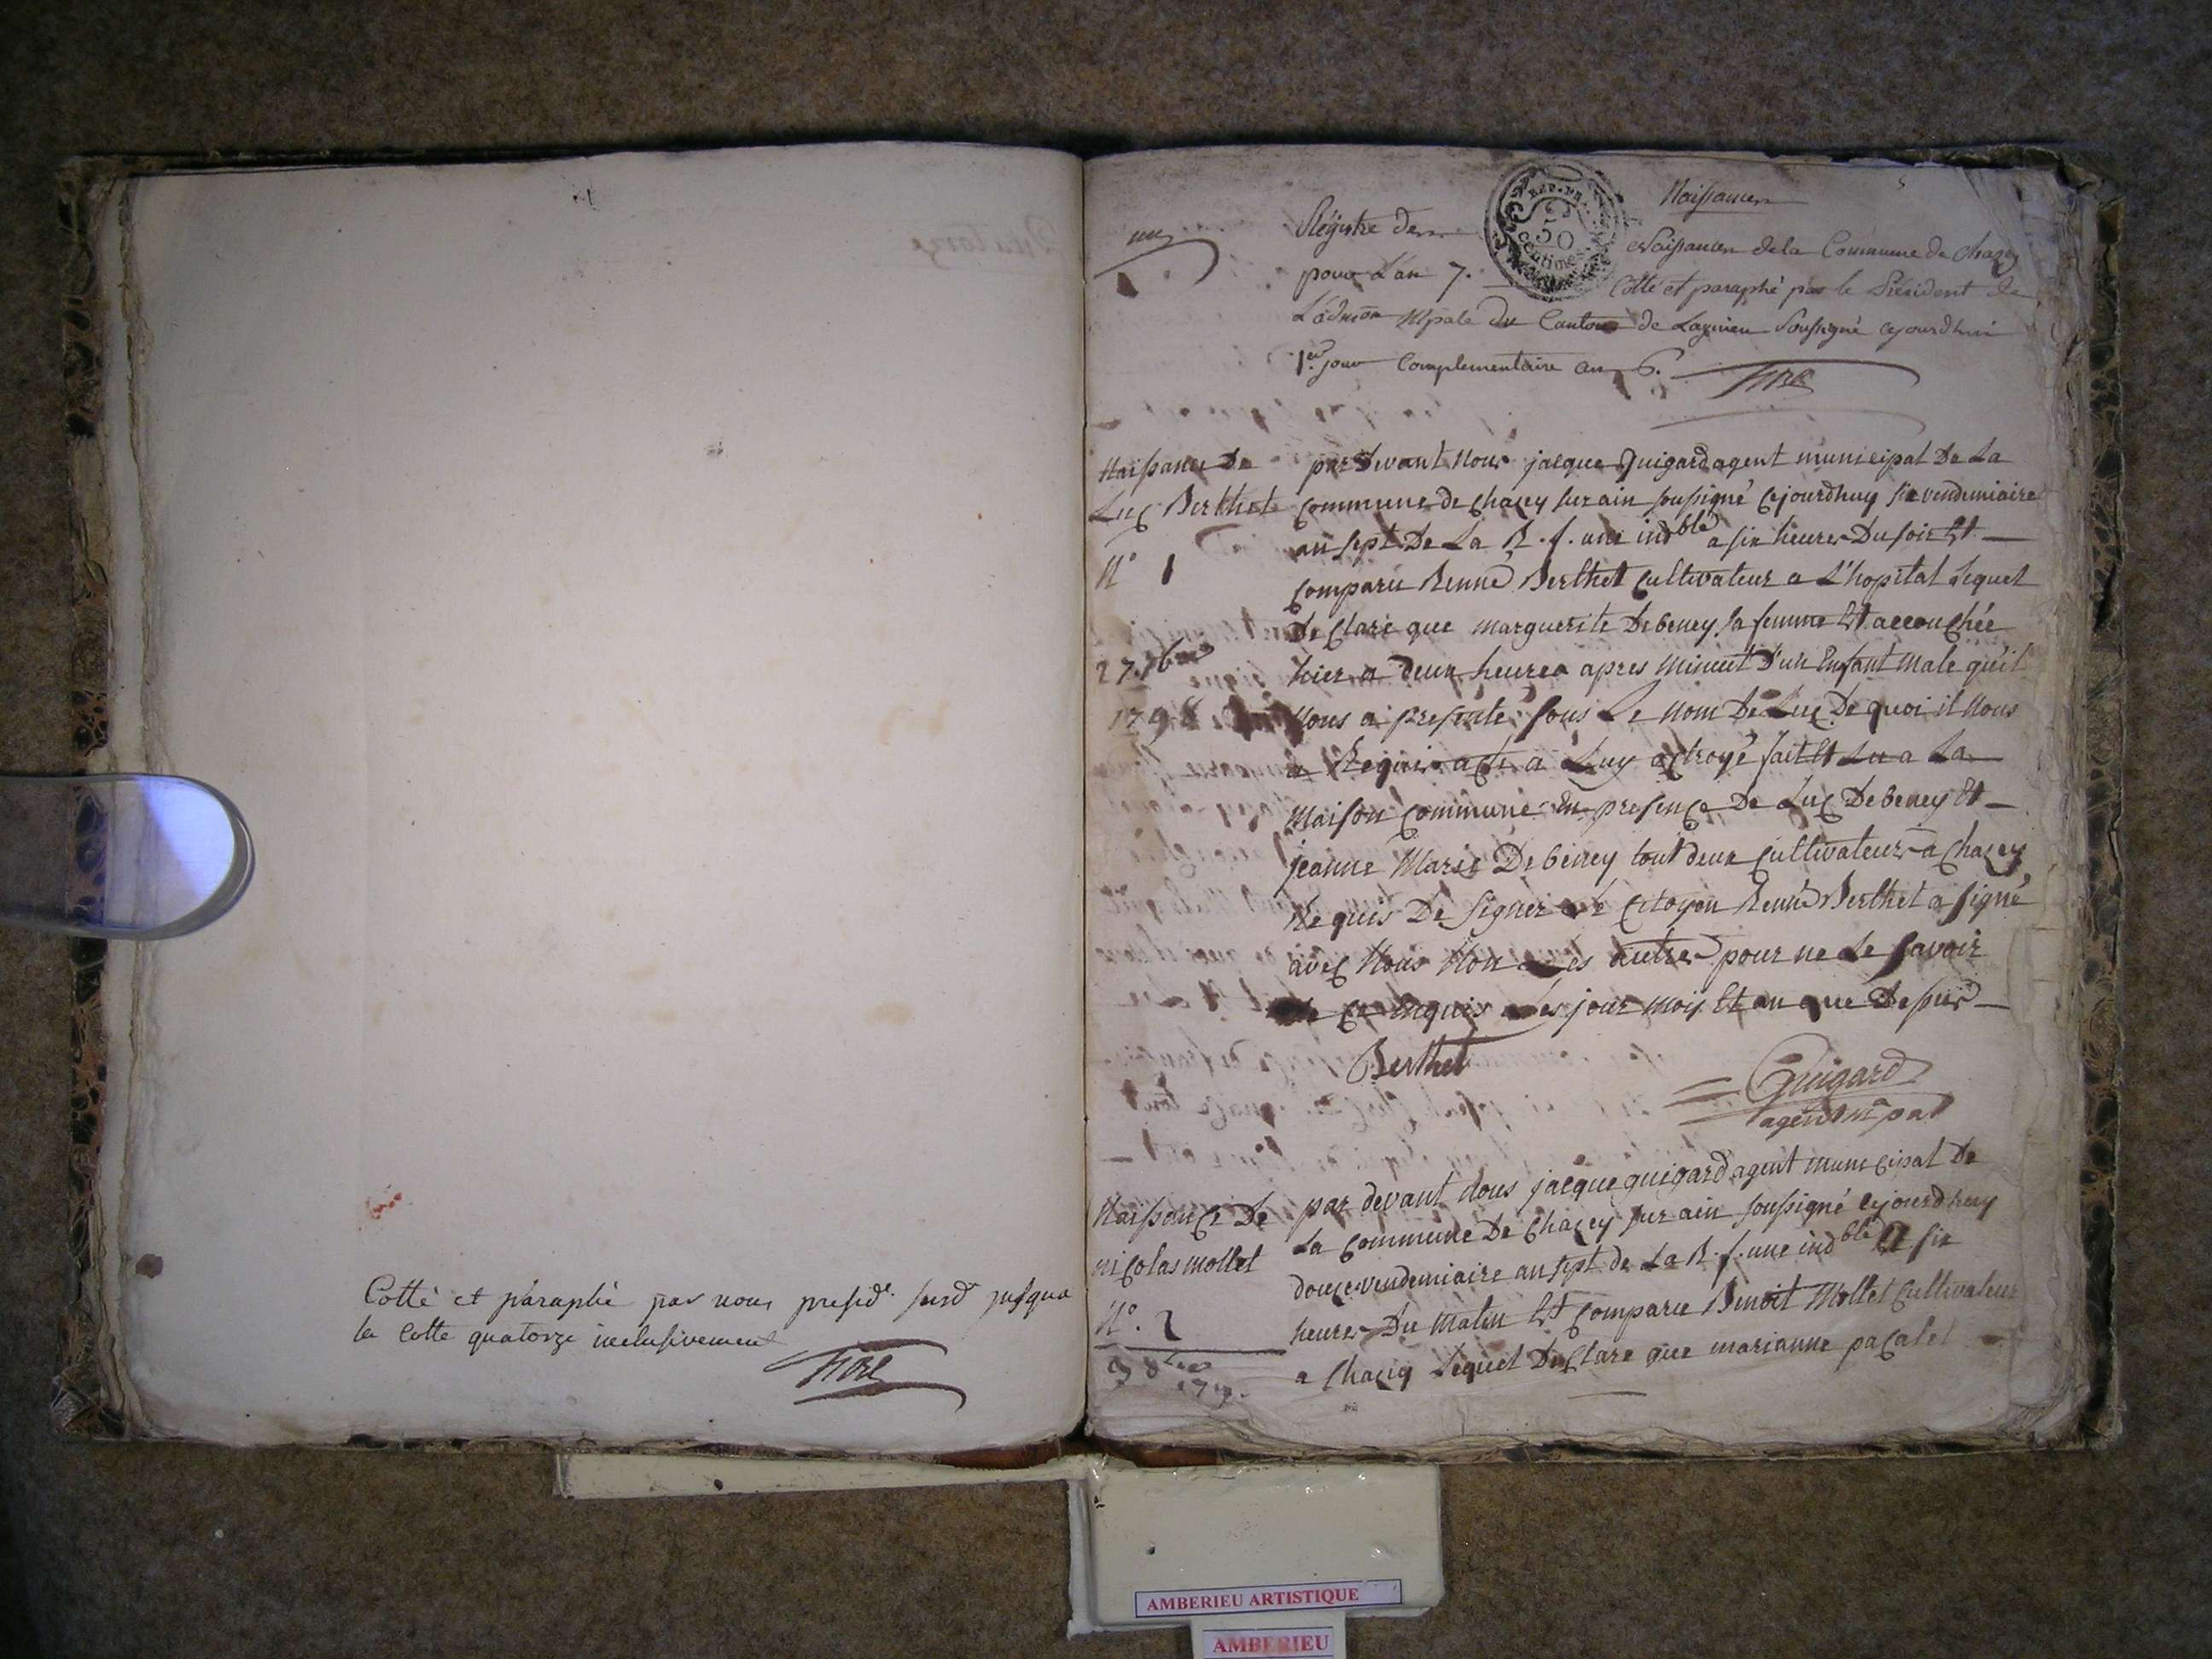 Cotté et paraphé par nous presid.t susd.t jusqua
la Cotte quatorze inclusivement
un
Naissances
REP. FR.
50
Centimes
Régistre des Naissances de la Commune de Chazey
pour L'an 7. Cotté et paraphé par le Président de
L'admon Mpale du Canton de Lagnieu Soussigné cejourdhui
1er jour Complementaire an 6.
Naissance De
Luc Berthet
N° 1
27. 7bre
1798
par devant Nous jacque Guigard agent municipal De La
Commune de Chazey sur ain soussigné Cejourdhuy six vendemiaire
an sept De La R. f. une indble a six heures Du soir Est
Comparu Renné Berthet Cultivateur a L'hopital Lequel
De Claré que marguerite Debeney sa femme Est accouchée
hier a deux heures apres Minuit D'un Enfant Male qu'il
Nous a presenté sous Le Nom De Luc De quoi il Nous
a Requis acte a Luy octroyé fait Et Lu a La
Maison Commune En presence De Luc Debeney Et
jeanne Marie Debeney tout deux Cultivateurs a Chazey
Requis De Signer Le Citoyen Renné Berthet a signé
avec Nous Non Les autres pour ne Le savoir
De Ce Enquis Les jour mois Et an que Dessus
Berthet
Guigard
agent mpal
Naissance De
nicolas mollet
N°. 2
par devant Nous jacque guigard agent municipal De
La Commune De Chazey sur ain soussigné Cejourdhuy
douze vendemiaire an sept de La R. f. une indble a six
heures Du Matin Est Comparu Benoit Mollet Cultivateur
a Chazey Lequel De Clare que marianne pacalet
AMBERIEU ARTISTIQUE
AMBERIEU